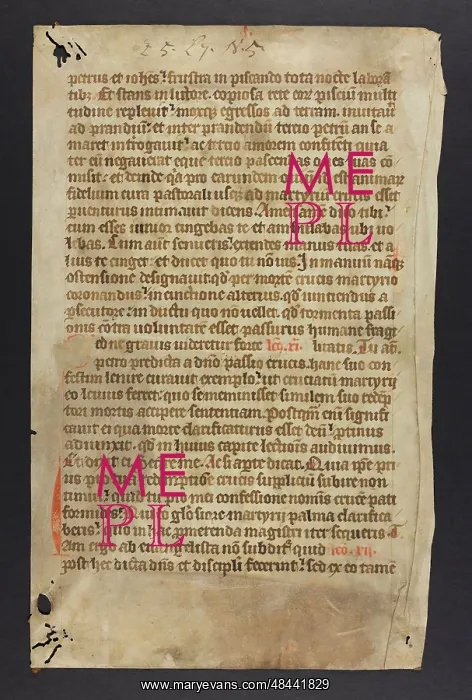 25. Ly. N. 5.
petrus et iohes frustra in piscando tota nocte labora
tib; Et stans in litore. copiosa rete eor pisciū multi
tudine repleuit. moxq; egressos ad terram. inuitau
ad prandiū. et inter prandendū tercio petrū an se a
maret introgauit. ac tercio amorem confitēti quia
ter eū negauerat eque tercio pascendas oues suas cō
misit. et deinde qa pro earundem id est animar
fidelium cura pastorali usq; ad martyriū crucis esset
puenturus intimauit dicens. Amē dico tibi.
cum esses iunior cingebas te et ambulabas ubi uo
lebas. Cum autē senueris extendes manus tuas. et a
lius te cinget. et ducet quo tu nō uis. In manuū naq;
ostensione designauit. qd per mortē crucis martyrio
coronandus. in cunctione alterius. qd uinciendus a
psecutore. in ductu quo nō vellet. qd tormenta passi
onis cōtra voluntatē esset passurus humane fragi
ed ne grauis uideretur forte lco. xi. litatis. Tu aū.
petro predicta a dno passio crucis. hanc suo con
fectum lenire curauit exemplo. ut cruciatū martyrii
eo leuius ferret. quo se meminisset similem suo recep
tori mortis accipere sententiam. Postqm eni signifi
cauit ei qua morte clarificaturus esset deū. protinus
adiunxit. qd in huius capite lectionis audiuimus.
Et dicit ei Sequere me. Ac si aperte dicat. Quia ipse pri
us redemptiōe crucis suppliciū subire non
timui. tu pro mei confessione nominis crucē pati
formidas. glosiore martyrii palma clarifica
beris. quo in hac promerenda magistri iter sequeris. T
am ab euangelista nō subditur quid lco. xii.
post hec dicta dns et discipli fecerint. sed ex eo tamē
ME
PL
ME
PL
www.maryevans.com/48441829